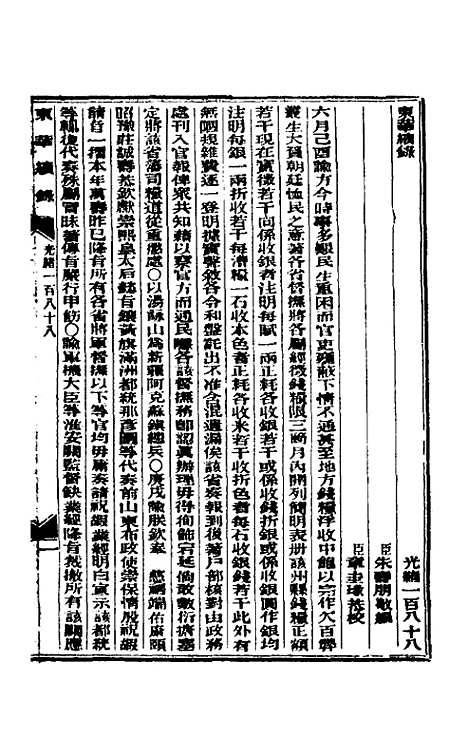 東華續錄
光緒一百八十八
臣朱壽朋敬編
臣章圭瑑恭校
六月己酉諭方今時事多艱民生重困而官吏壅蔽下情不通甚至地方錢糧浮收中飽以完作欠百弊
叢生大負朝廷恤民之意著各省督撫將各屬經徵錢糧限三箇月內開列簡明表冊該州縣錢糧正額
若干現在實徵若干向係收銀者注明每賦一兩正耗各收銀若干或係收錢折銀或係收銀圓作銀均
注明每銀一兩折收若干每漕糧一石收本色者正耗各收米若干收折色者每石收銀錢若干此外有
無陋規雜費逐一登明據實聲敘各令和盤託出不准含混遺漏俟該省奏報到後著戶部核對由政務
處刊入官報俾眾共知藉以察官方而通民隱各該督撫務即認真辦理毋得徇飾宕延倘敢敷衍搪塞
定將該省藩司糧道從重懲處○以湯詠山為新疆阿克蘇鎮總兵○庚戌諭朕欽奉 慈禧端佑康頤
昭豫莊誠壽恭欽獻崇熙皇太后懿旨鑲黃旗滿洲都統那彥圖等代奏前山東布政使崇保情殷祝嘏
請旨一摺本年萬壽昨已降旨所有各省將軍督撫以下等官均毋庸奏請祝嘏業經明白宣示該都統
等輒復代奏殊屬冒昧著傳旨嚴行申飭○諭軍機大臣等淮安關監督缺業經降旨裁撤所有該關應
東華續錄 光緒一百八十八 一